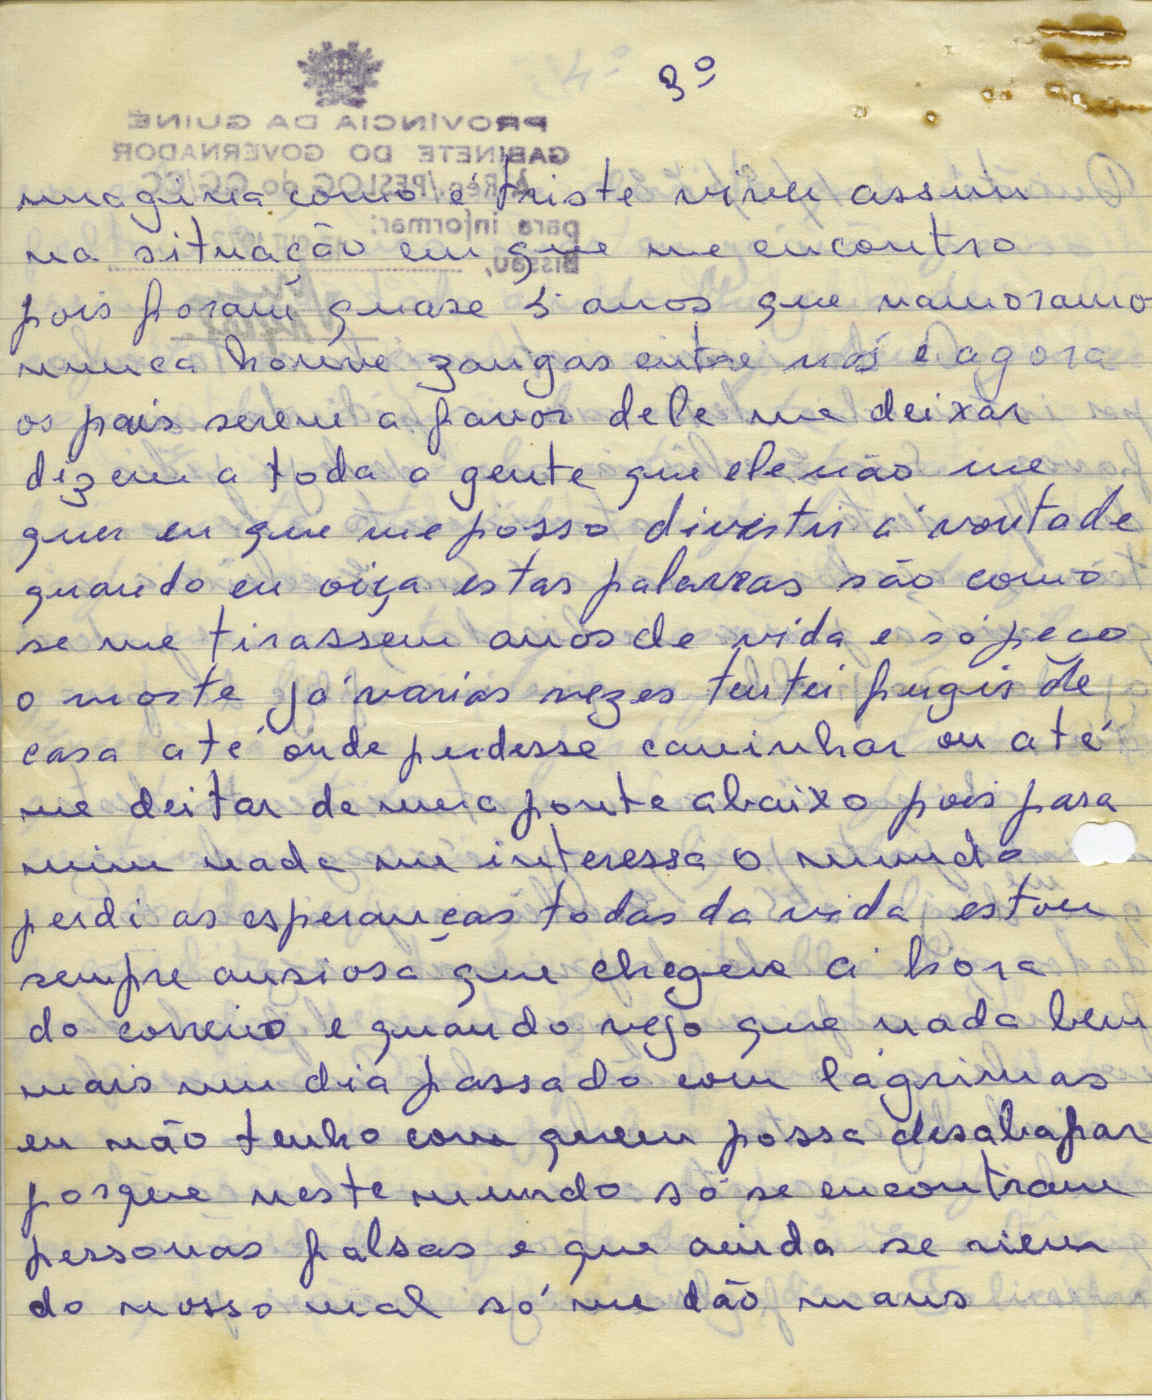 3º
PROVÍNCIA DA GUINÉ
GABINETE DO GOVERNADOR
À Rep/PESLOG do QG/CC
para informar.
Bissau,
imagina como é triste viver assim
na situação em que me encontro
pois foram quase 5 anos que namoramo
nunca houve zangas entre nós e agora
os pais serem a favor dele me deixar
dizem a toda a gente que ele não me
quer eu que me posso divertir á vontade
quando eu oiça estas palavras são como
se me tirassem anos de vida e só peco
o morte já varias vezes tentei fugir de
casa até onde pudesse caminhar ou até
me deitar de uma ponte abaixo pois para
mim nada me interessa o mundo
perdi as esperanças todas da vida estou
sempre ansiosa que chegue a hora
do correio e quando vejo que nada bem
mais um dia passado com lágrimas
eu não tenho com quem possa desabafar
porque neste mundo só se encontram
pessonas falsas e que ainda se riem
do nosso mal só me dão maus